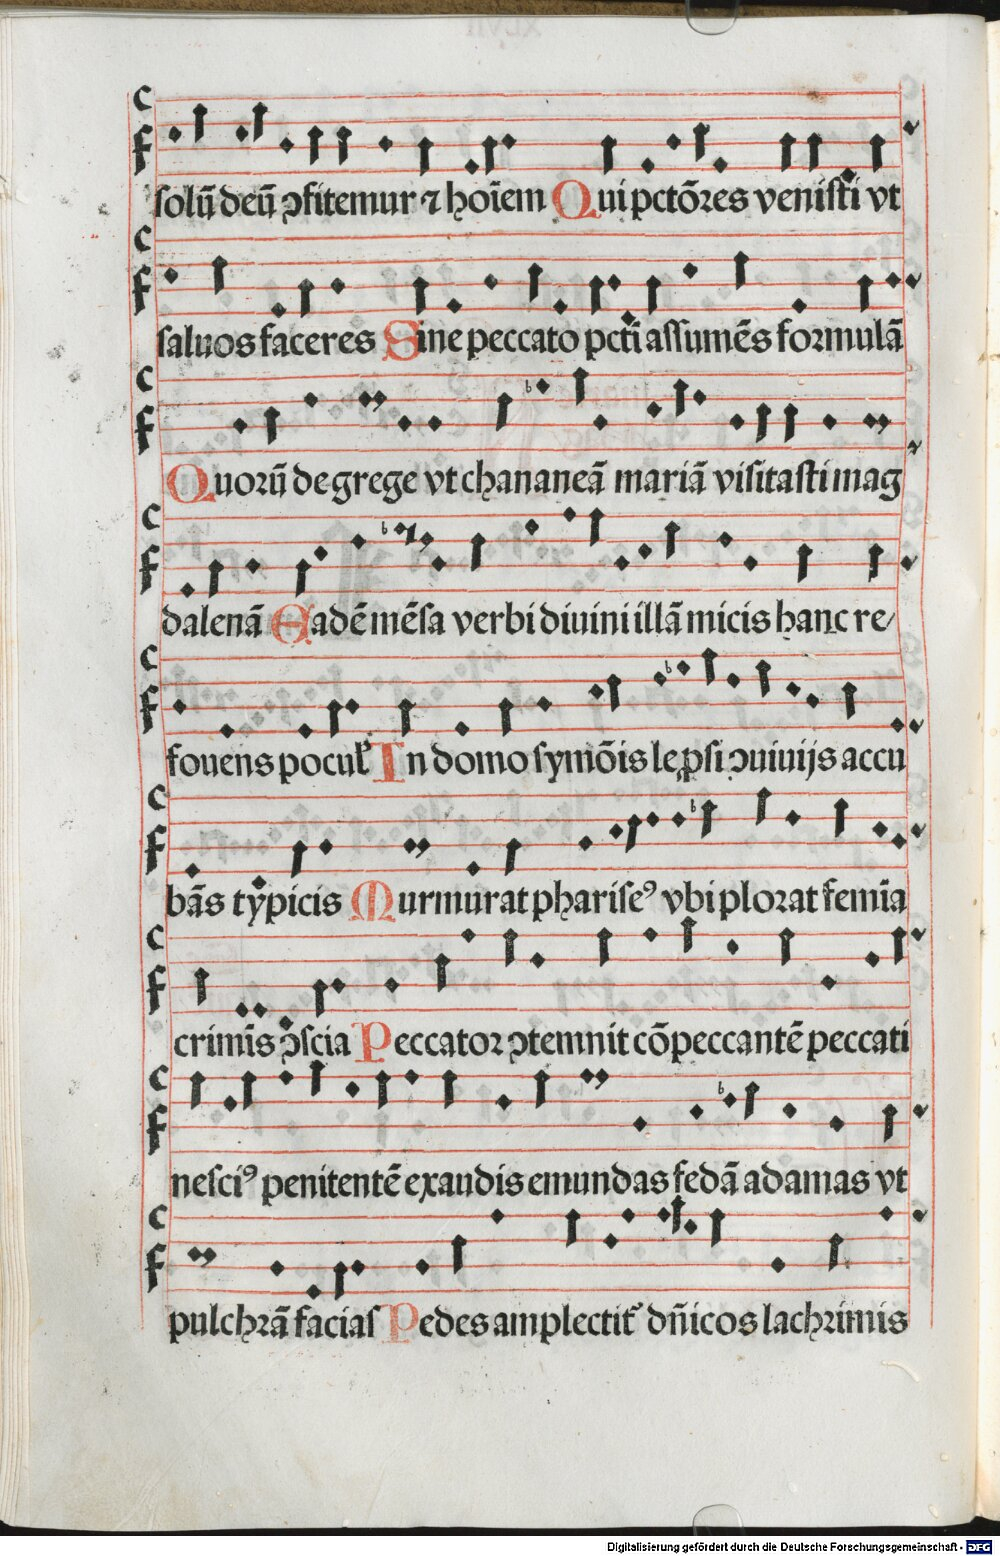 solū deū ꝯfitemur ⁊ hoīem Qui pctōres venisti vt
saluos faceres Sine peccato pcti assumēs formulā
Quorū de grege vt chananeā mariā visitasti mag
dalenā Eadē mēsa verbi diuini illā micis hanc re/
fouens pocul' In domo symōis leprosi ꝯuiuijs accu
bās typicis Murmurat pharise⁹ vbi plorat femīa
crimīs ꝯscia Peccator ꝯtemnit cōpeccantē peccati
nesci⁹ penitentē exaudis emundas fedā adamas vt
pulchrā facias Pedes amplectit' dn̄icos lachrimis
Digitalisierung gefördert durch die Deutsche Forschungsgemeinschaft - DFG